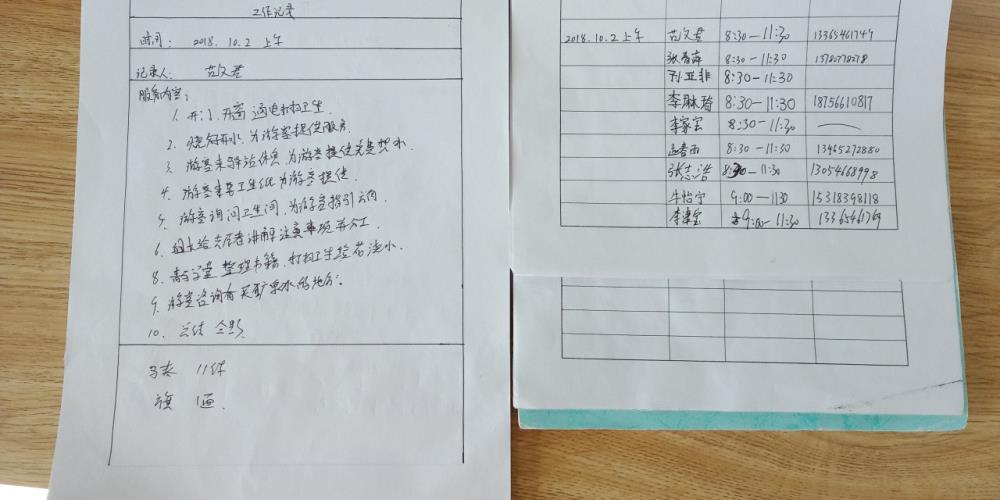 工作记录
时间： 2018.10.2 上午
记录人： 范文君
服务内容：
1. 开门、开窗 通电打扫卫生
2. 烧好开水，为游客提供服务
3. 游客来驿站休息，为游客提供免费热水
4. 游客要卫生纸为游客提供.
5. 游客询问卫生间，为游客指引方向
6. 组长给志愿者讲解注意事项并分工
8. 整理书籍，打扫卫生给花浇水.
9. 游客咨询有买矿泉水的地方.
10. 总结 合影
马夹 11件
旗 1面.
2018.10.2上午 范文君 8:30—11:30 13365461749
张春萍 8:30—11:30 15782778278
孙亚非 8:30—11:30
李琳 8:30—11:30 18756610817
李家宝 8:30—11:30 —
孟春雨 8:30—11:30 13465272880
张志浩 8:30—11:30 13054668998
牛怡宁 9:00—1130 15318398118
李建宝 9:00—11:30 13365461769